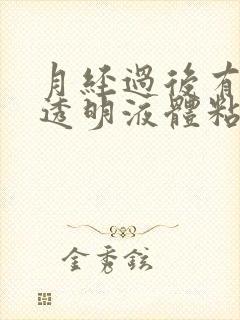 月經過後有
透明液體粘
金秀鉉